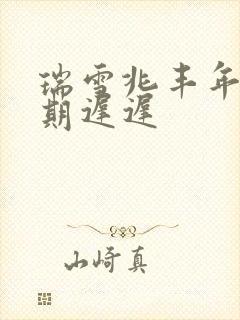 瑞雪兆丰年
期遲遲
山崎真